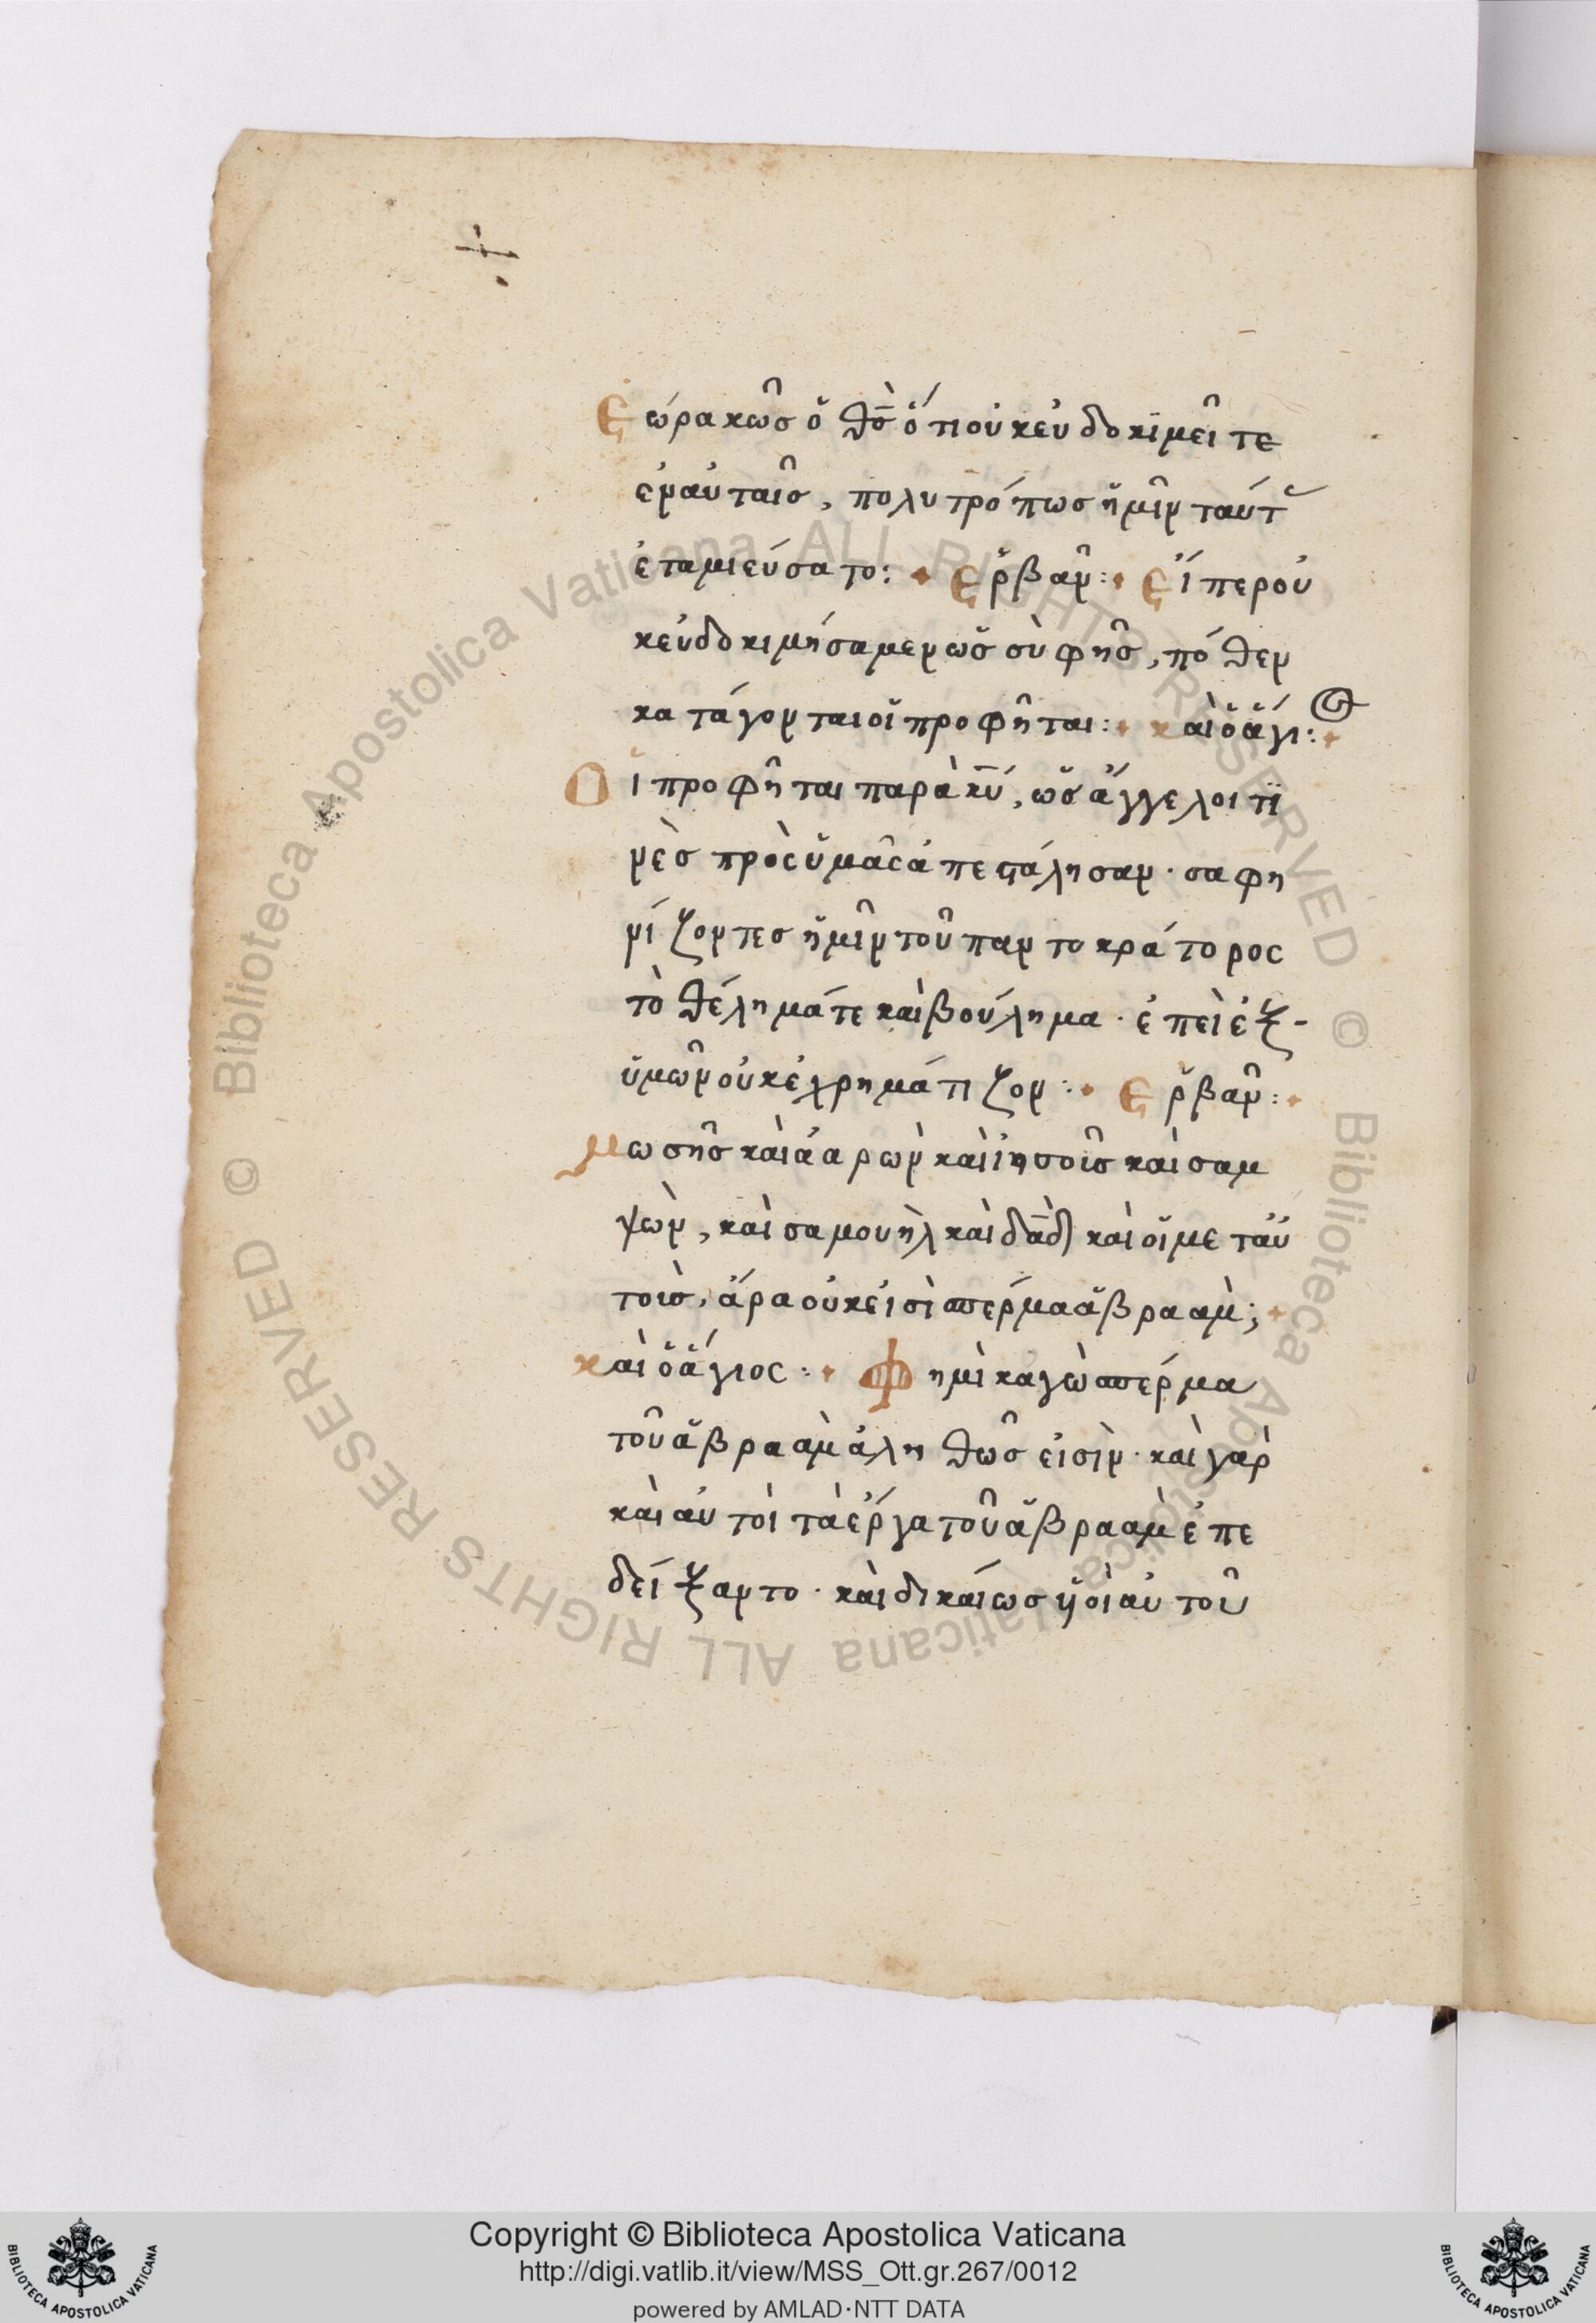 Ἑωρακῶς ὁ θ̅ς̅ ὅτι οὐκ εὐδοκϊμεῖτε
ἐν αὐταῖς, πολυτρόπως ἡμῖν ταύτ
ἐταμιεύσατο: Ἑρβᾶν: Εἴπερ οὐ
κ εὐδοκιμήσαμεν ὡς σὺ φῇς, πόθεν
κατάγονται οἱ προφῆται: καὶ ὁ ἅγι:
Οἱ προφῆται παρὰ κ̅υ̅, ὡς ἄγγελοι τϊ
νὲς πρὸς ὑμᾶς ἀπεστάλησαν · σαφη
νίζοντες ἡμῖν τοῦ παντοκράτορος
τὸ θέλημά τε καὶ βούλημα · ἐπεὶ ἐξ-
ὑμῶν οὐκ ἐχρημάτιζον: Ἑρβᾶν:
Μωσῆς καὶ ἀαρὼν καὶ ἰησοῖς καὶ σαμ
ψὼν, καὶ σαμουὴλ καὶ δ̅α̅δ̅ καὶ οἱ μετ αὐ
τοὶς, ἄρα οὐκ εἰσὶ σπέρμα ἁβρααμ;
καὶ ὁ ἅγιος: Φημὶ κἀγὼ σπέρμα
τοῦ ἁβρααμ ἀληθῶς εἰσὶν · καὶ γὰρ
καὶ αὐτοὶ τὰ ἔργα τοῦ ἁβρααμ ἐπε
δείξαντο · καὶ δικαίως ὑϊοὶ αὐτοῦ
Copyright © Biblioteca Apostolica Vaticana
http://digi.vatlib.it/view/MSS_Ott.gr.267/0012
powered by AMLAD·NTT DATA
© Biblioteca Apostolica Vaticana ALL RIGHTS RESERVED
© Biblioteca Apostolica Vaticana ALL RIGHTS RESERVED
BIBLIOTECA APOSTOLICA VATICANA
BIBLIOTECA APOSTOLICA VATICANA